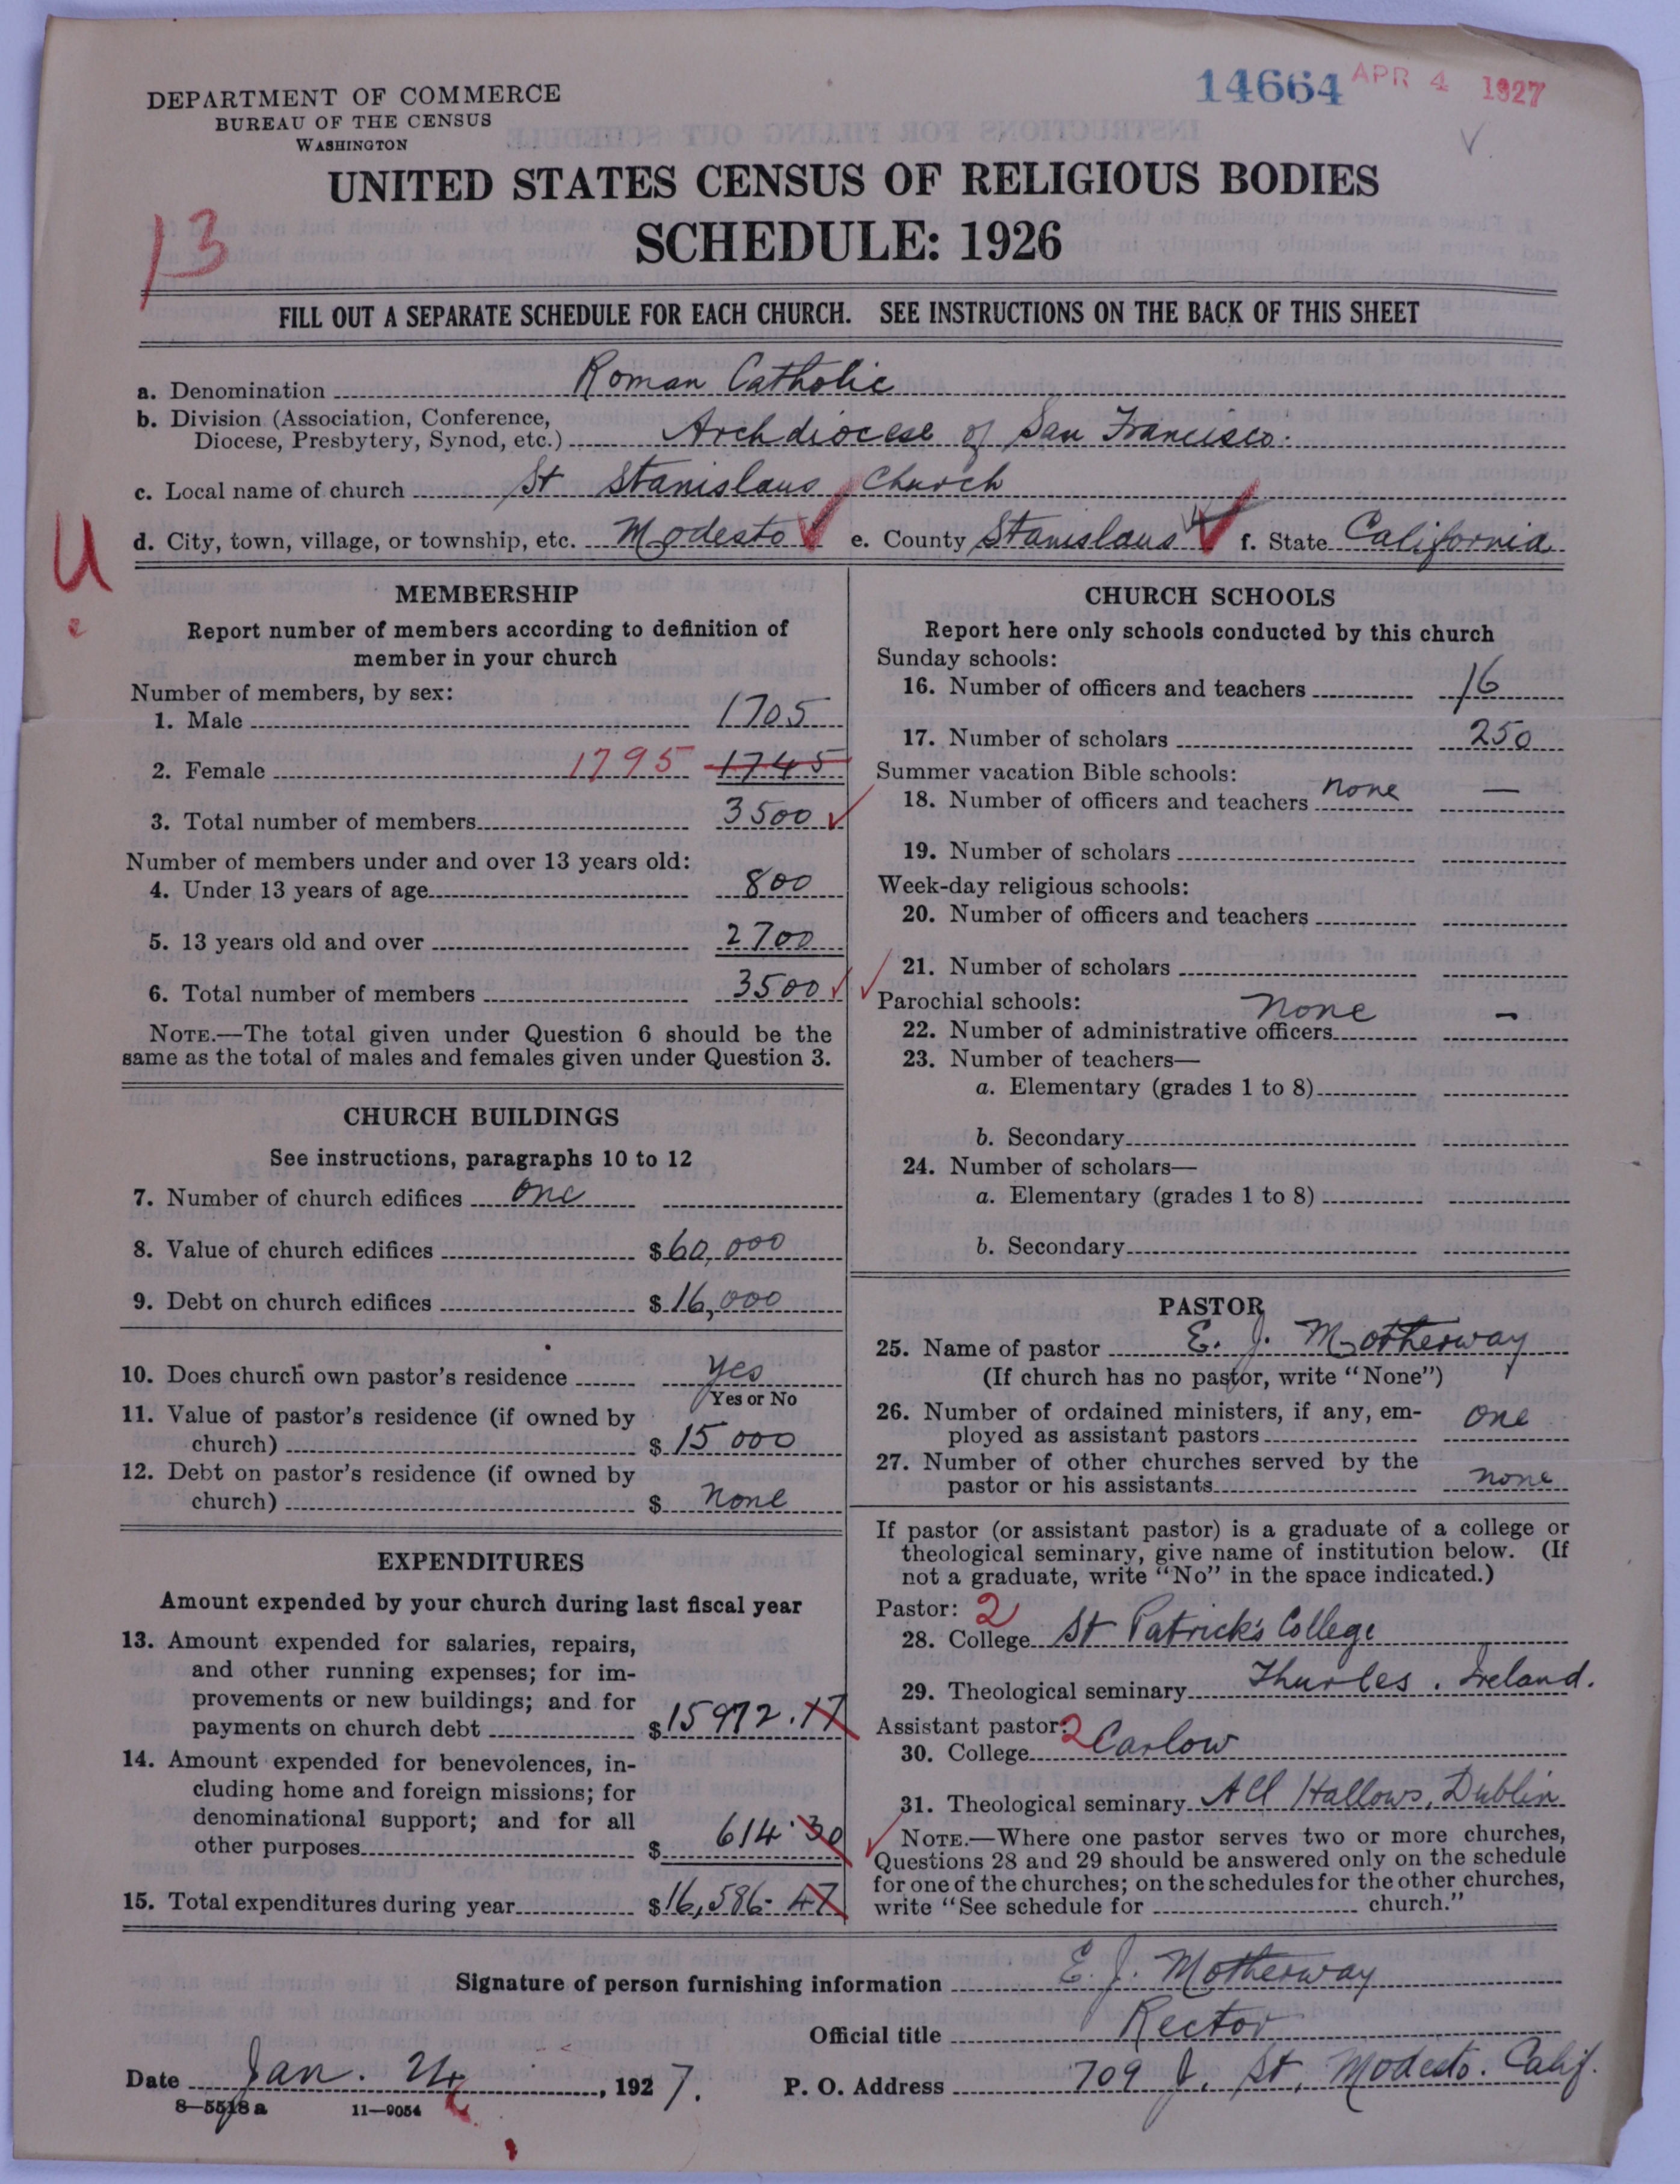 14664 APR 4 1927
DEPARTMENT OF COMMERCE
BUREAU OF THE CENSUS
WASHINGTON
UNITED STATES CENSUS OF RELIGIOUS BODIES
SCHEDULE: 1926
13
FILL OUT A SEPARATE SCHEDULE FOR EACH CHURCH. SEE INSTRUCTIONS ON THE BACK OF THIS SHEET
a. Denomination Roman Catholic
b. Division (Association, Conference,
Diocese, Presbytery, Synod, etc.) Archdiocese of San Francisco.
c. Local name of church St Stanislaus Church
d. City, town, village, or township, etc. Modesto e. County Stanislaus f. State California
U
MEMBERSHIP
Report number of members according to definition of
member in your church
Number of members, by sex:
1. Male 1705
2. Female 1795 1745
3. Total number of members 3500
Number of members under and over 13 years old:
4. Under 13 years of age 800
5. 13 years old and over 2700
6. Total number of members 3500
NOTE.—The total given under Question 6 should be the
same as the total of males and females given under Question 3.
CHURCH BUILDINGS
See instructions, paragraphs 10 to 12
7. Number of church edifices one
8. Value of church edifices $60,000
9. Debt on church edifices $16,000
10. Does church own pastor's residence yes
Yes or No
11. Value of pastor's residence (if owned by
church) $15 000
12. Debt on pastor's residence (if owned by
church) $ none
EXPENDITURES
Amount expended by your church during last fiscal year
13. Amount expended for salaries, repairs,
and other running expenses; for im-
provements or new buildings; and for
payments on church debt $15972.17
14. Amount expended for benevolences, in-
cluding home and foreign missions; for
denominational support; and for all
other purposes $ 614.30
15. Total expenditures during year $16,586.47
CHURCH SCHOOLS
Report here only schools conducted by this church
Sunday schools:
16. Number of officers and teachers 16
17. Number of scholars 250
Summer vacation Bible schools:
18. Number of officers and teachers none —
19. Number of scholars
Week-day religious schools:
20. Number of officers and teachers
21. Number of scholars
Parochial schools:
22. Number of administrative officers none -
23. Number of teachers—
a. Elementary (grades 1 to 8)
b. Secondary
24. Number of scholars—
a. Elementary (grades 1 to 8)
b. Secondary
PASTOR
25. Name of pastor E. J. Motherway
(If church has no pastor, write "None")
26. Number of ordained ministers, if any, em-
ployed as assistant pastors one
27. Number of other churches served by the
pastor or his assistants none
If pastor (or assistant pastor) is a graduate of a college or
theological seminary, give name of institution below. (If
not a graduate, write "No" in the space indicated.)
Pastor: 2
28. College St Patrick's College
29. Theological seminary Thurles. Ireland.
Assistant pastor: 2
30. College Carlow
31. Theological seminary All Hallows, Dublin
NOTE.—Where one pastor serves two or more churches,
Questions 28 and 29 should be answered only on the schedule
for one of the churches; on the schedules for the other churches,
write "See schedule for church."
Signature of person furnishing information E. J. Motherway
Official title Rector
Date Jan. 24, 1927. P. O. Address 709 J. St, Modesto. Calif.
8—5518a 11—9054